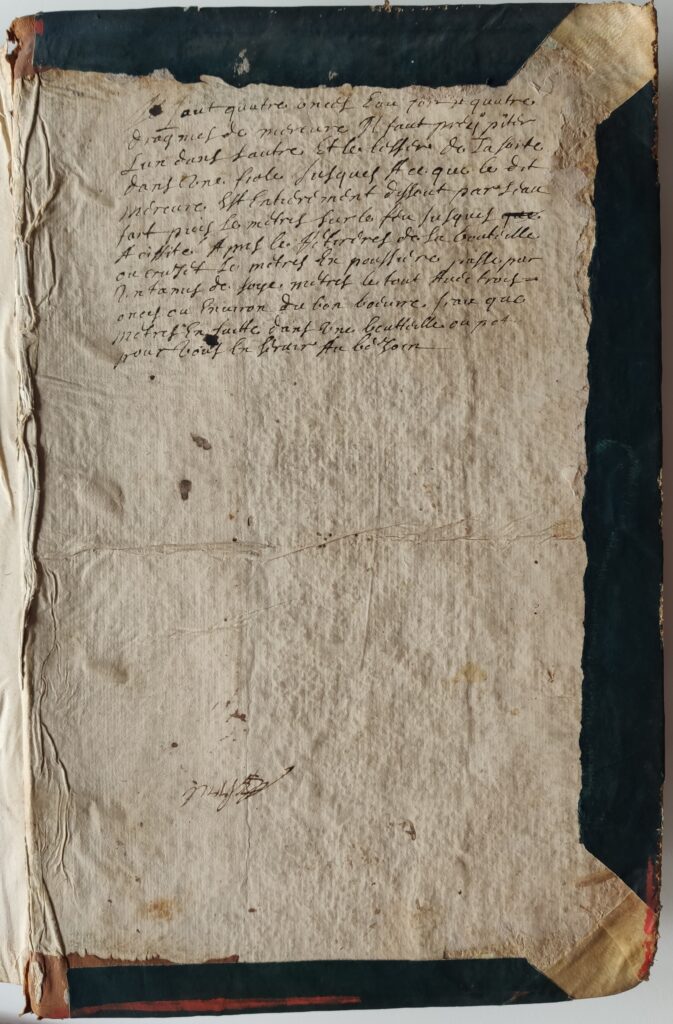 Il faut quatre onces Eau fort et quatre
dragmes de mercure Il faut precipiter
Lun dans lautre Et le laisser de La sorte
dans Une fiole Jusques Ace que le dit
Mercure Est Entierement dissout par leau
fort puis Le metres sur le feu Jusques
Apres le de La bouteille
ou Le metres En poussiere passe par
Un tamis de soye metres le tout Avec trois
onces ou Environ du bon beurre frais que
metres En suitte dans Une boutteille ou pot
pour Vous En servir Au besoin